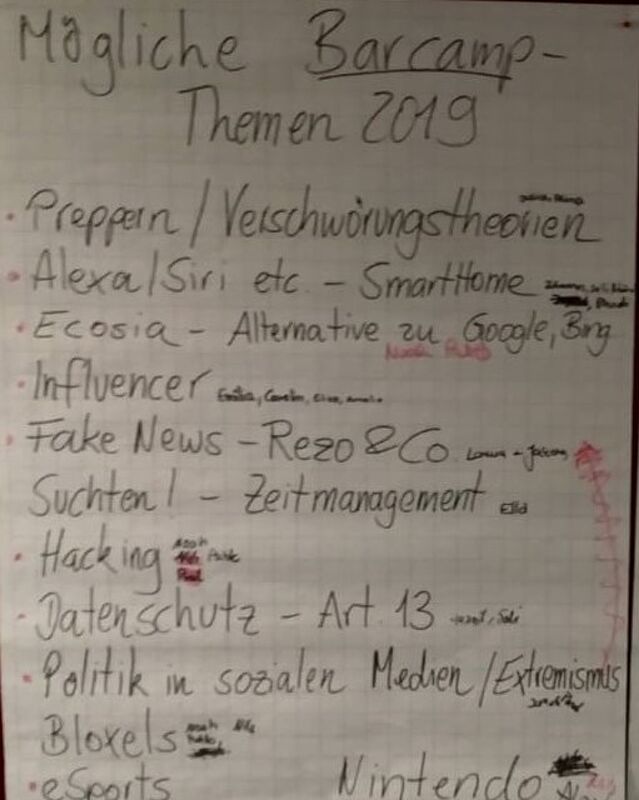 Mögliche Barcamp-
Themen 2019
· Preppern / Verschwörungstheorien
· Alexa/Siri etc. - SmartHome
· Ecosia - Alternative zu Google, Bing
· Influencer
· Fake News - Rezo & Co.
Suchten! - Zeitmanagement
· Hacking
· Datenschutz - Art. 13
· Politik in sozialen Medien / Extremismus
Bloxels
· eSports Nintendo